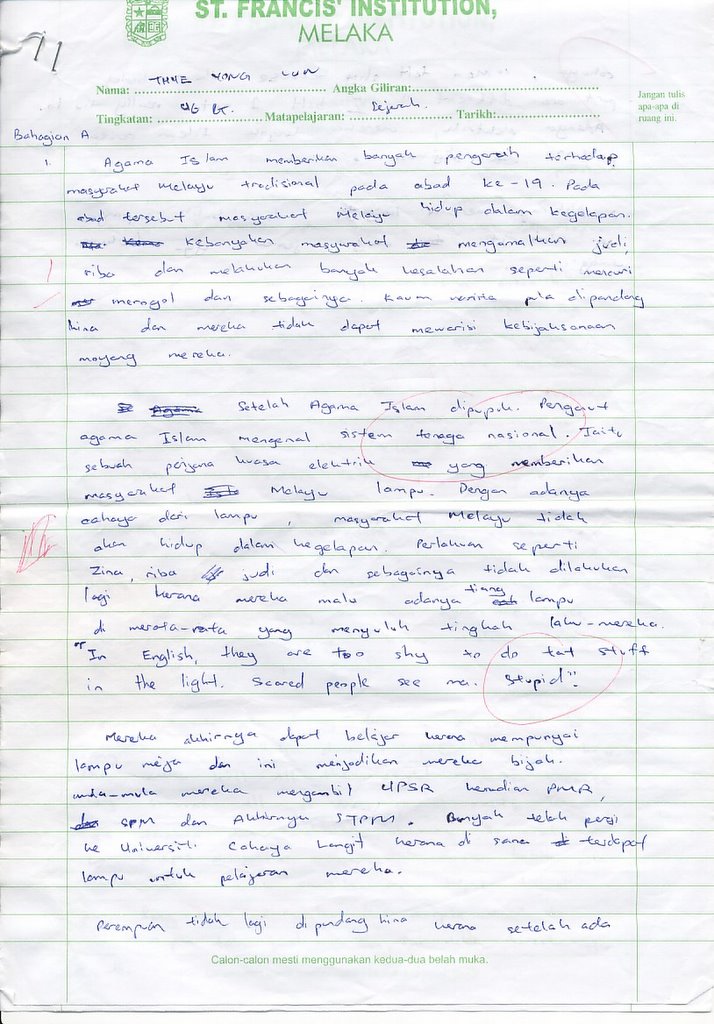 ST. FRANCIS' INSTITUTION,
MELAKA
Nama: THYE YONG LUN Angka Giliran:
Tingkatan: 4G Matapelajaran: Sejarah. Tarikh:
Jangan tulis
apa-apa di
ruang ini.
Bahagian A
1. Agama Islam memberikan banyak pengaruh terhadap
masyarakat Melayu tradisional pada abad ke-19. Pada
abad tersebut masyarakat Melayu hidup dalam kegelapan.
Kebanyakan masyarakat mengamalkan judi,
riba dan melakukan banyak kesalahan seperti mencuri
merogol dan sebagainya. Kaum wanita pula dipandang
hina dan mereka tidak dapat mewarisi kebijaksanaan
moyang mereka.
Setelah Agama Islam dipupuk. Penganut
agama Islam mengenal sistem tenaga nasional. Iaitu
sebuah penjana kuasa elektrik yang memberikan
masyarakat Melayu lampu. Dengan adanya
cahaya dari lampu, masyarakat Melayu tidak
akan hidup dalam kegelapan. Perlakuan seperti
Zina, riba judi dan sebagainya tidak dilakukan
lagi kerana mereka malu adanya tiang lampu
di merata-rata yang menyuluh tingkah laku-mereka.
"In English, they are too shy to do tat stuff
in the light. Scared people see ma. Stupid!!
Mereka akhirnya dapat belajar kerana mempunyai
lampu meja dan ini menjadikan mereka bijak.
mula-mula mereka mengambil UPSR kemudian PMR,
SPM dan Akhirnya STPM. Banyak telah pergi
ke Universiti Cahaya Langit kerana di sana terdapat
lampu untuk pelajaran mereka.
Perempuan tidak lagi dipandang hina kerana setelah ada
Calon-calon mesti menggunakan kedua-dua belah muka.